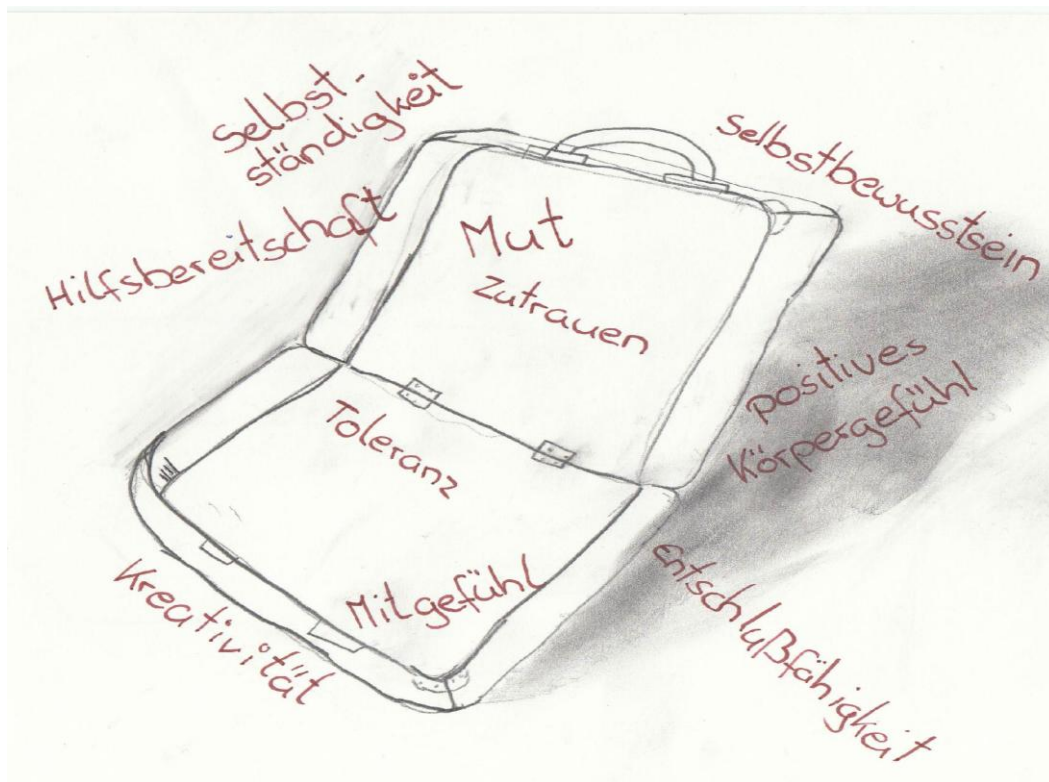 Selbst-
ständigkeit
Hilfsbereitschaft
Selbstbewusstsein
Mut
Zutrauen
positives
Körpergefühl
Toleranz
Mitgefühl
Kreativität
Entschlußfähigkeit